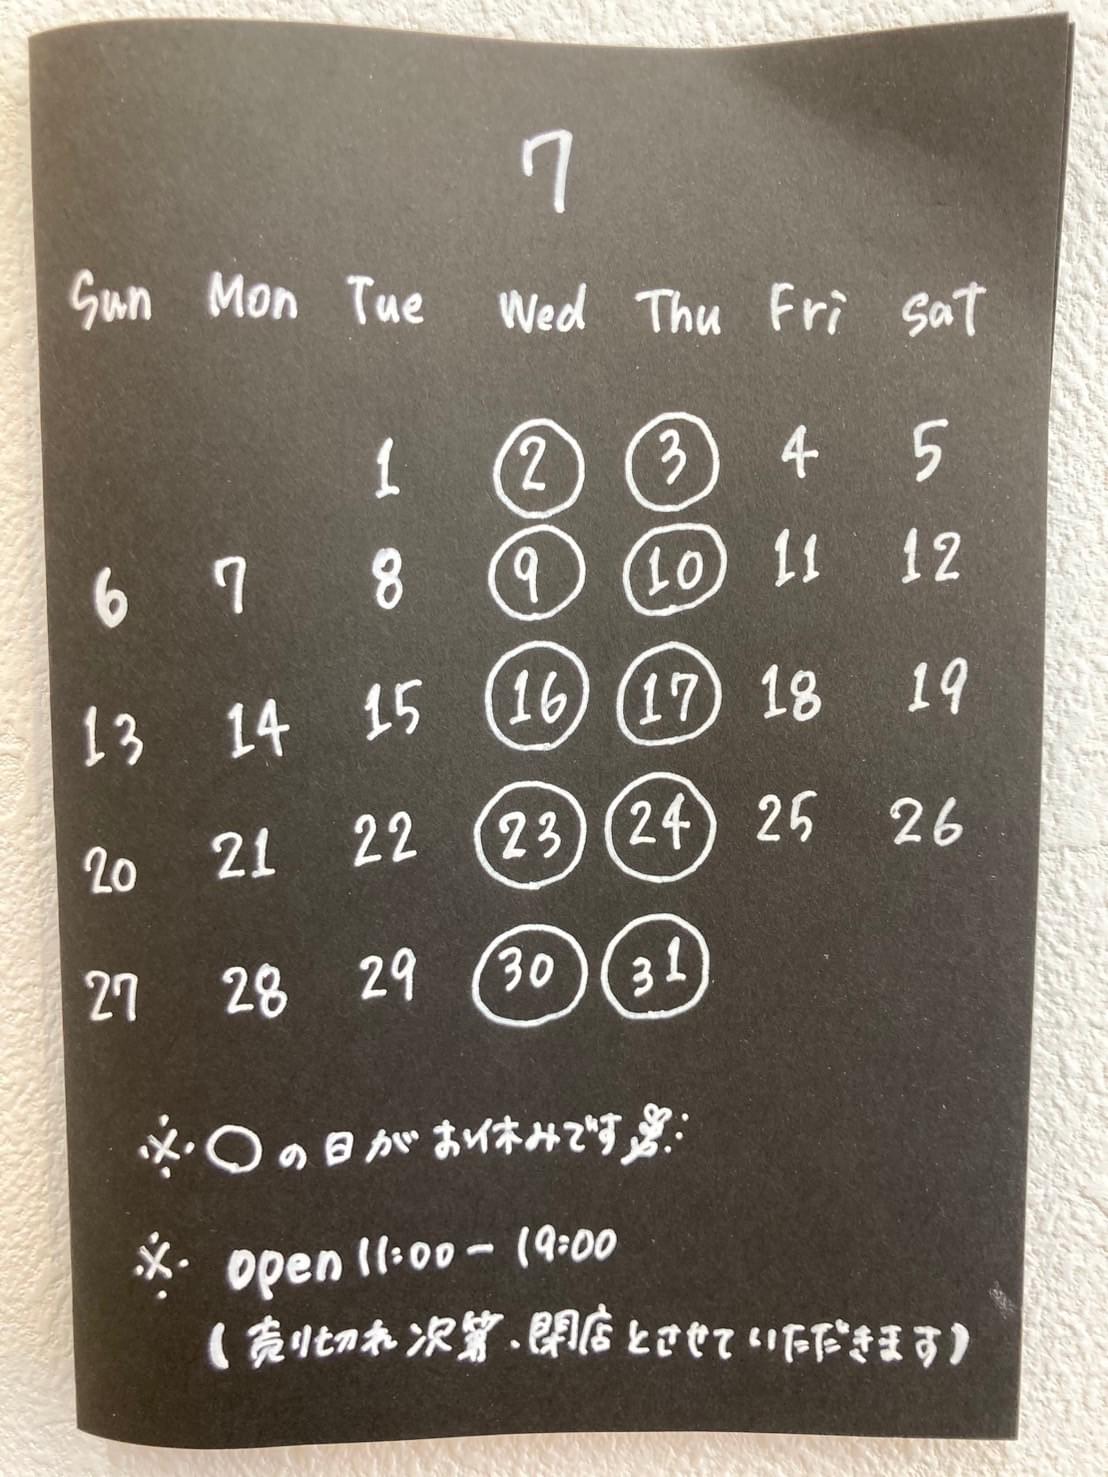 7
Sun Mon Tue Wed Thu Fri Sat
1 2 3 4 5
6 7 8 9 10 11 12
13 14 15 16 17 18 19
20 21 22 23 24 25 26
27 28 29 30 31
※○の日がお休みです
※ open 11:00-19:00
(売り切れ次第、閉店とさせていただきます)